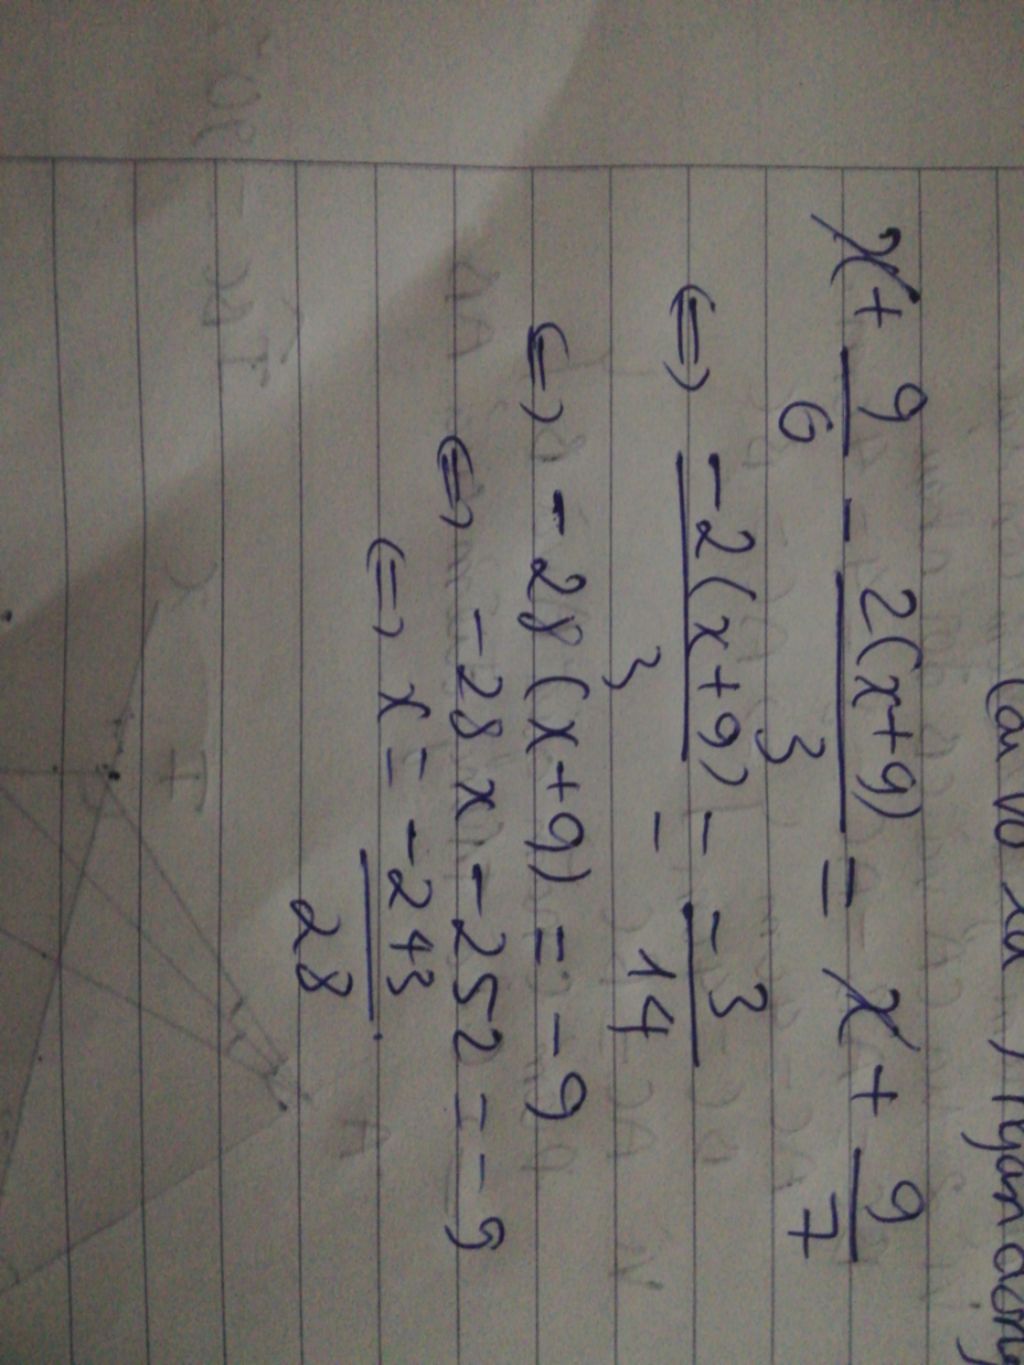 x + 9/6 - 2(x+9)/3 = x + 9/7
⇔ -2(x+9)/3 = -3/14
⇔ -28(x+9) = -9
⇔ -28x - 252 = -9
⇔ x = -243/28.